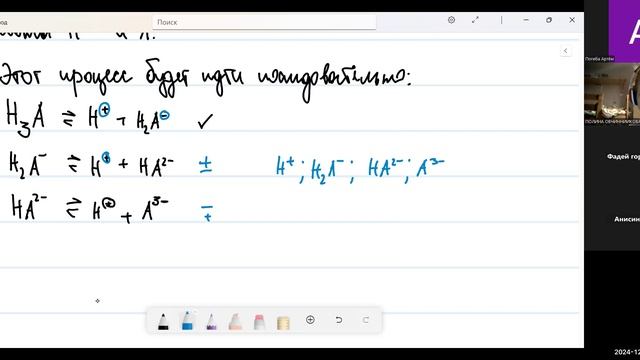 Поиск
Этот процесс будет идти последовательно:
H₃A ⇌ H⁺ + H₂A⁻ ✓
H₂A⁻ ⇌ H⁺ + HA²⁻ ± H⁺; H₂A⁻; HA²⁻; A³⁻
HA²⁻ ⇌ H⁺ + A³⁻ ∓
Погеба Артём
ПОЛИНА ОВЧИННИКОВА
Фадей гор
Анисин
2024-12